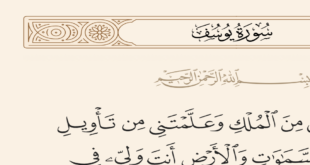 سُورَةُ يُوسُفَ
بِسْمِ ٱللَّهِ ٱلرَّحْمَٰنِ ٱلرَّحِيمِ
مِنَ ٱلْمُلْكِ وَعَلَّمْتَنِى مِن تَأْوِيلِ
ٱلسَّمَٰوَٰتِ وَٱلْأَرْضِ أَنتَ وَلِىِّۦ فِى